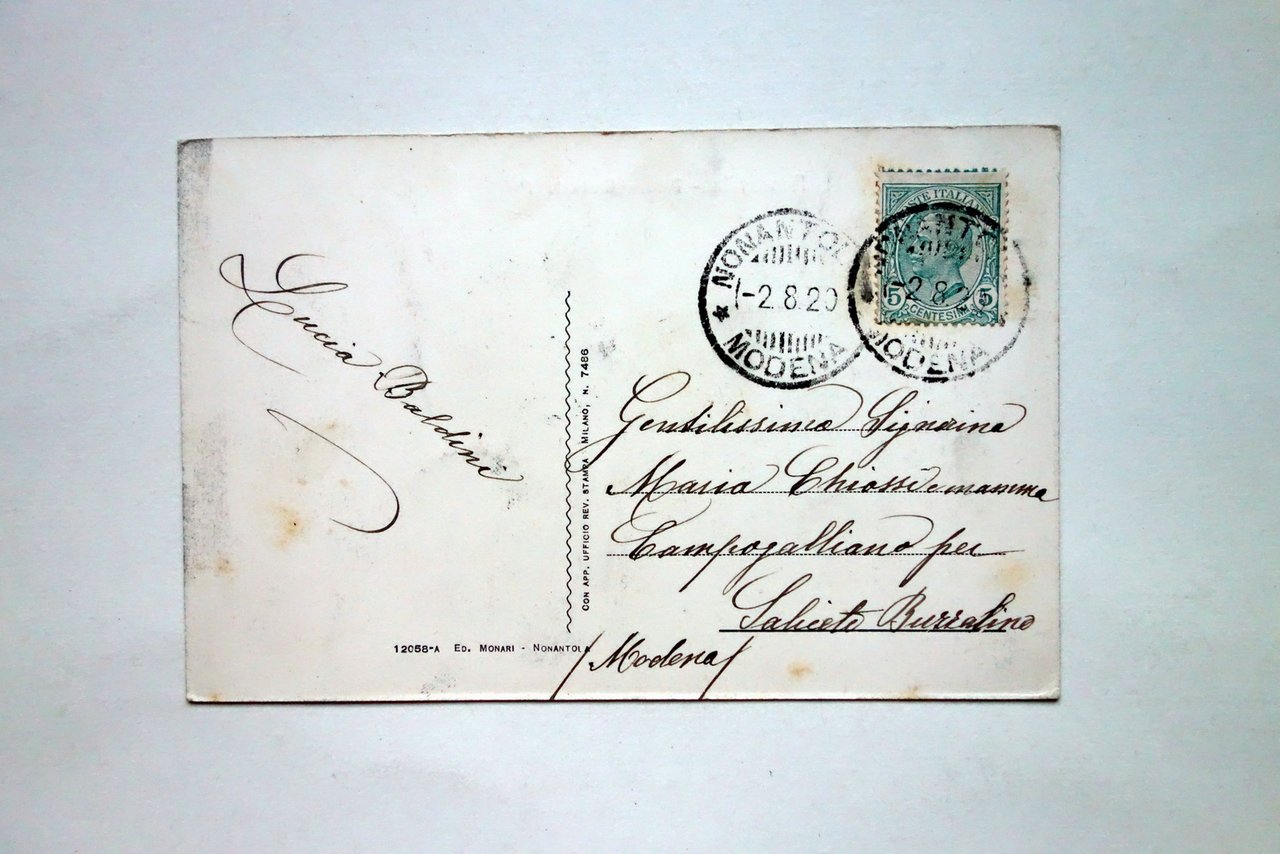 POSTE ITALIANE
5 5
CENTESIMI
NONANTOL
-2.8.20
MODENA
NONANTO
-2.8
MODENA
Lucia Baldini
Gentilissima Signorina
Maria Chiossi e mamma
Campogalliano per
Saliceto Buzzalino
(Modena)
CON APP. UFFICIO REV. STAMPA MILANO, N. 7486
12058-A ED. MONARI - NONANTOLA